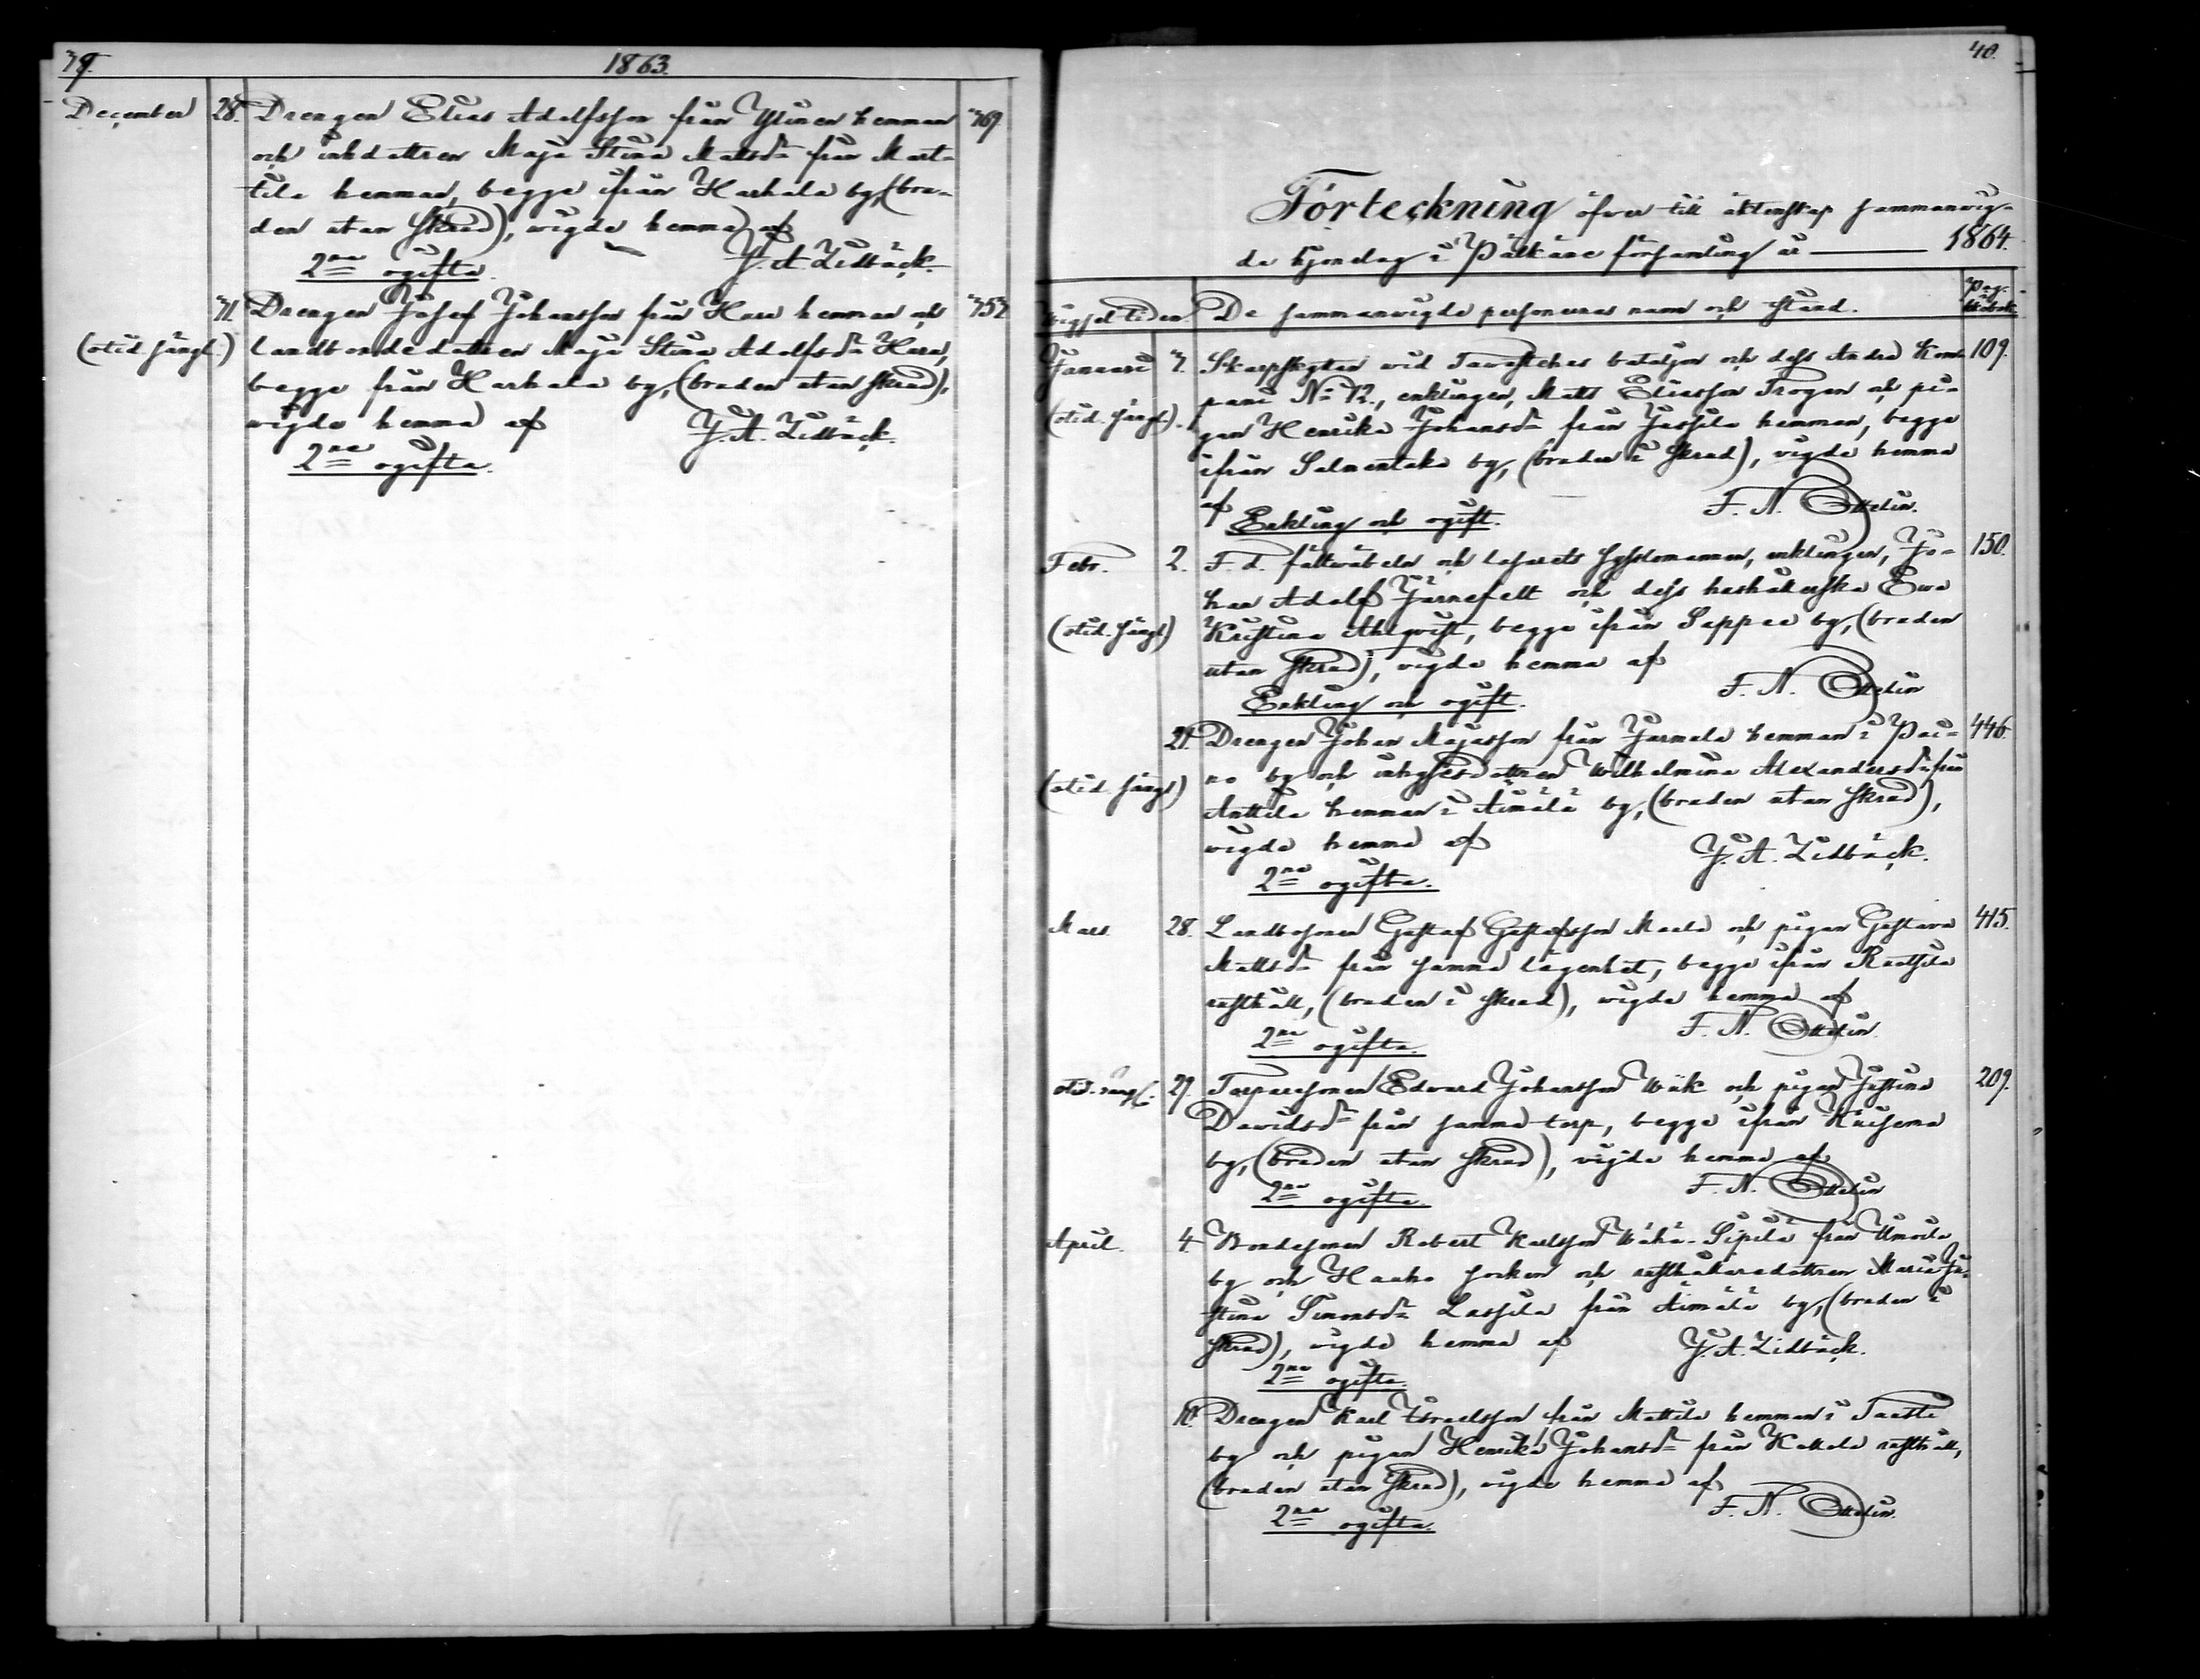 39.
1863.
December 28. Drengen Elias Adolfsson från Ylinen hemman 369
och inhdottren Maja Stina Mattsdr från Mart-
tila hemman, begge ifrån Harhala by, (bru-
den utan skrud), wigde hemma af
2ne ogifta. J. A. Lidbäck.
31. Drengen Josef Johansson från Hara hemman och 352
(otid. sängl.) landbondedottren Maja Stina Adolfsdr Hara,
begge från Harhala by, (bruden utan skrud),
wigde hemma af J. A. Lidbäck.
2ne ogifta.
40.
Förteckning öfver till äktenskap sammanwig-
de hjonelag i Pälkäne församling år — 1864.
Wigsel-tiden. De sammanwigde personernas namn och stånd. Pag.
Januari 3. Skarpskytten vid Tavastehus bataljon och dess Andra Kom- 109.
(otid. sängl.) pani No 12., enklingen, Matts Eliasson Trogen och pi-
gan Henrika Johansdr från Jussila hemman, begge
ifrån Salmentaka by, (bruden i skrud), vigde hemma
af F. N. Ottelin.
Enkling och ogift.
Febr. 2. F. d. fältwäbeln och lasarets sysslomannen, enklingen, Jo- 150.
han Adolf Järnefelt och dess hushållerska Eva
(otid. sängl) Kristina Ahlqvist, begge ifrån Seppee by, (bruden
utan skrud), vigde hemma af
Enkling och ogift. F. N. Ottelin
21. Drengen Johan Majasson från Jarmala hemman i Pai- 446.
(otid. sängl) no by och inhysesdottren Wilhelmina Alexandersdr från
Anttila hemman i Äimälä by, (bruden utan skrud),
wigde hemma af J. A. Lidbäck.
2ne ogifta.
Mars. 28. Landbosonen Gustaf Gustafsson Maula och pigan Gustava 415.
Mattsdr från samma lägenhet, begge ifrån Ruotsila
rusthåll, (bruden i skrud), wigde hemma af
2ne ogifta. F. N. Ottelin.
otid. sängl. 29. Torparesonen Edvard Johansson Wäk och pigan Justina 209.
Davidsdr från samma torp, begge ifrån Kuisema
by, (bruden utan skrud), vigde hemma af
2ne ogifta. F. N. Ottelin
April. 4. Bondesonen Robert Karlsson Wähä-Sipilä från Umoila
by och Hauho socken och rusthållaredottren Maria Ju-
stina Simonsdr Lassila från Äimälä by, (bruden i
skrud), wigde hemma af J. A. Lidbäck.
2ne ogifta.
10. Drengen Karl Israelsson från Mattila hemman i Tausti
by och pigan Henrika Johansdr från Kattala rusthåll,
(bruden utan skrud), vigde hemma af
2ne ogifta. F. N. Ottelin.